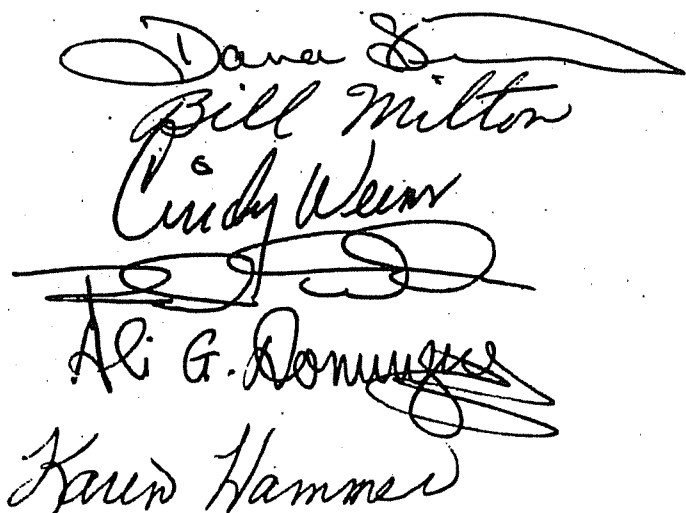 Dana
Bill Milton
Cindy
Ali G. Dominguez
Karen Hammer